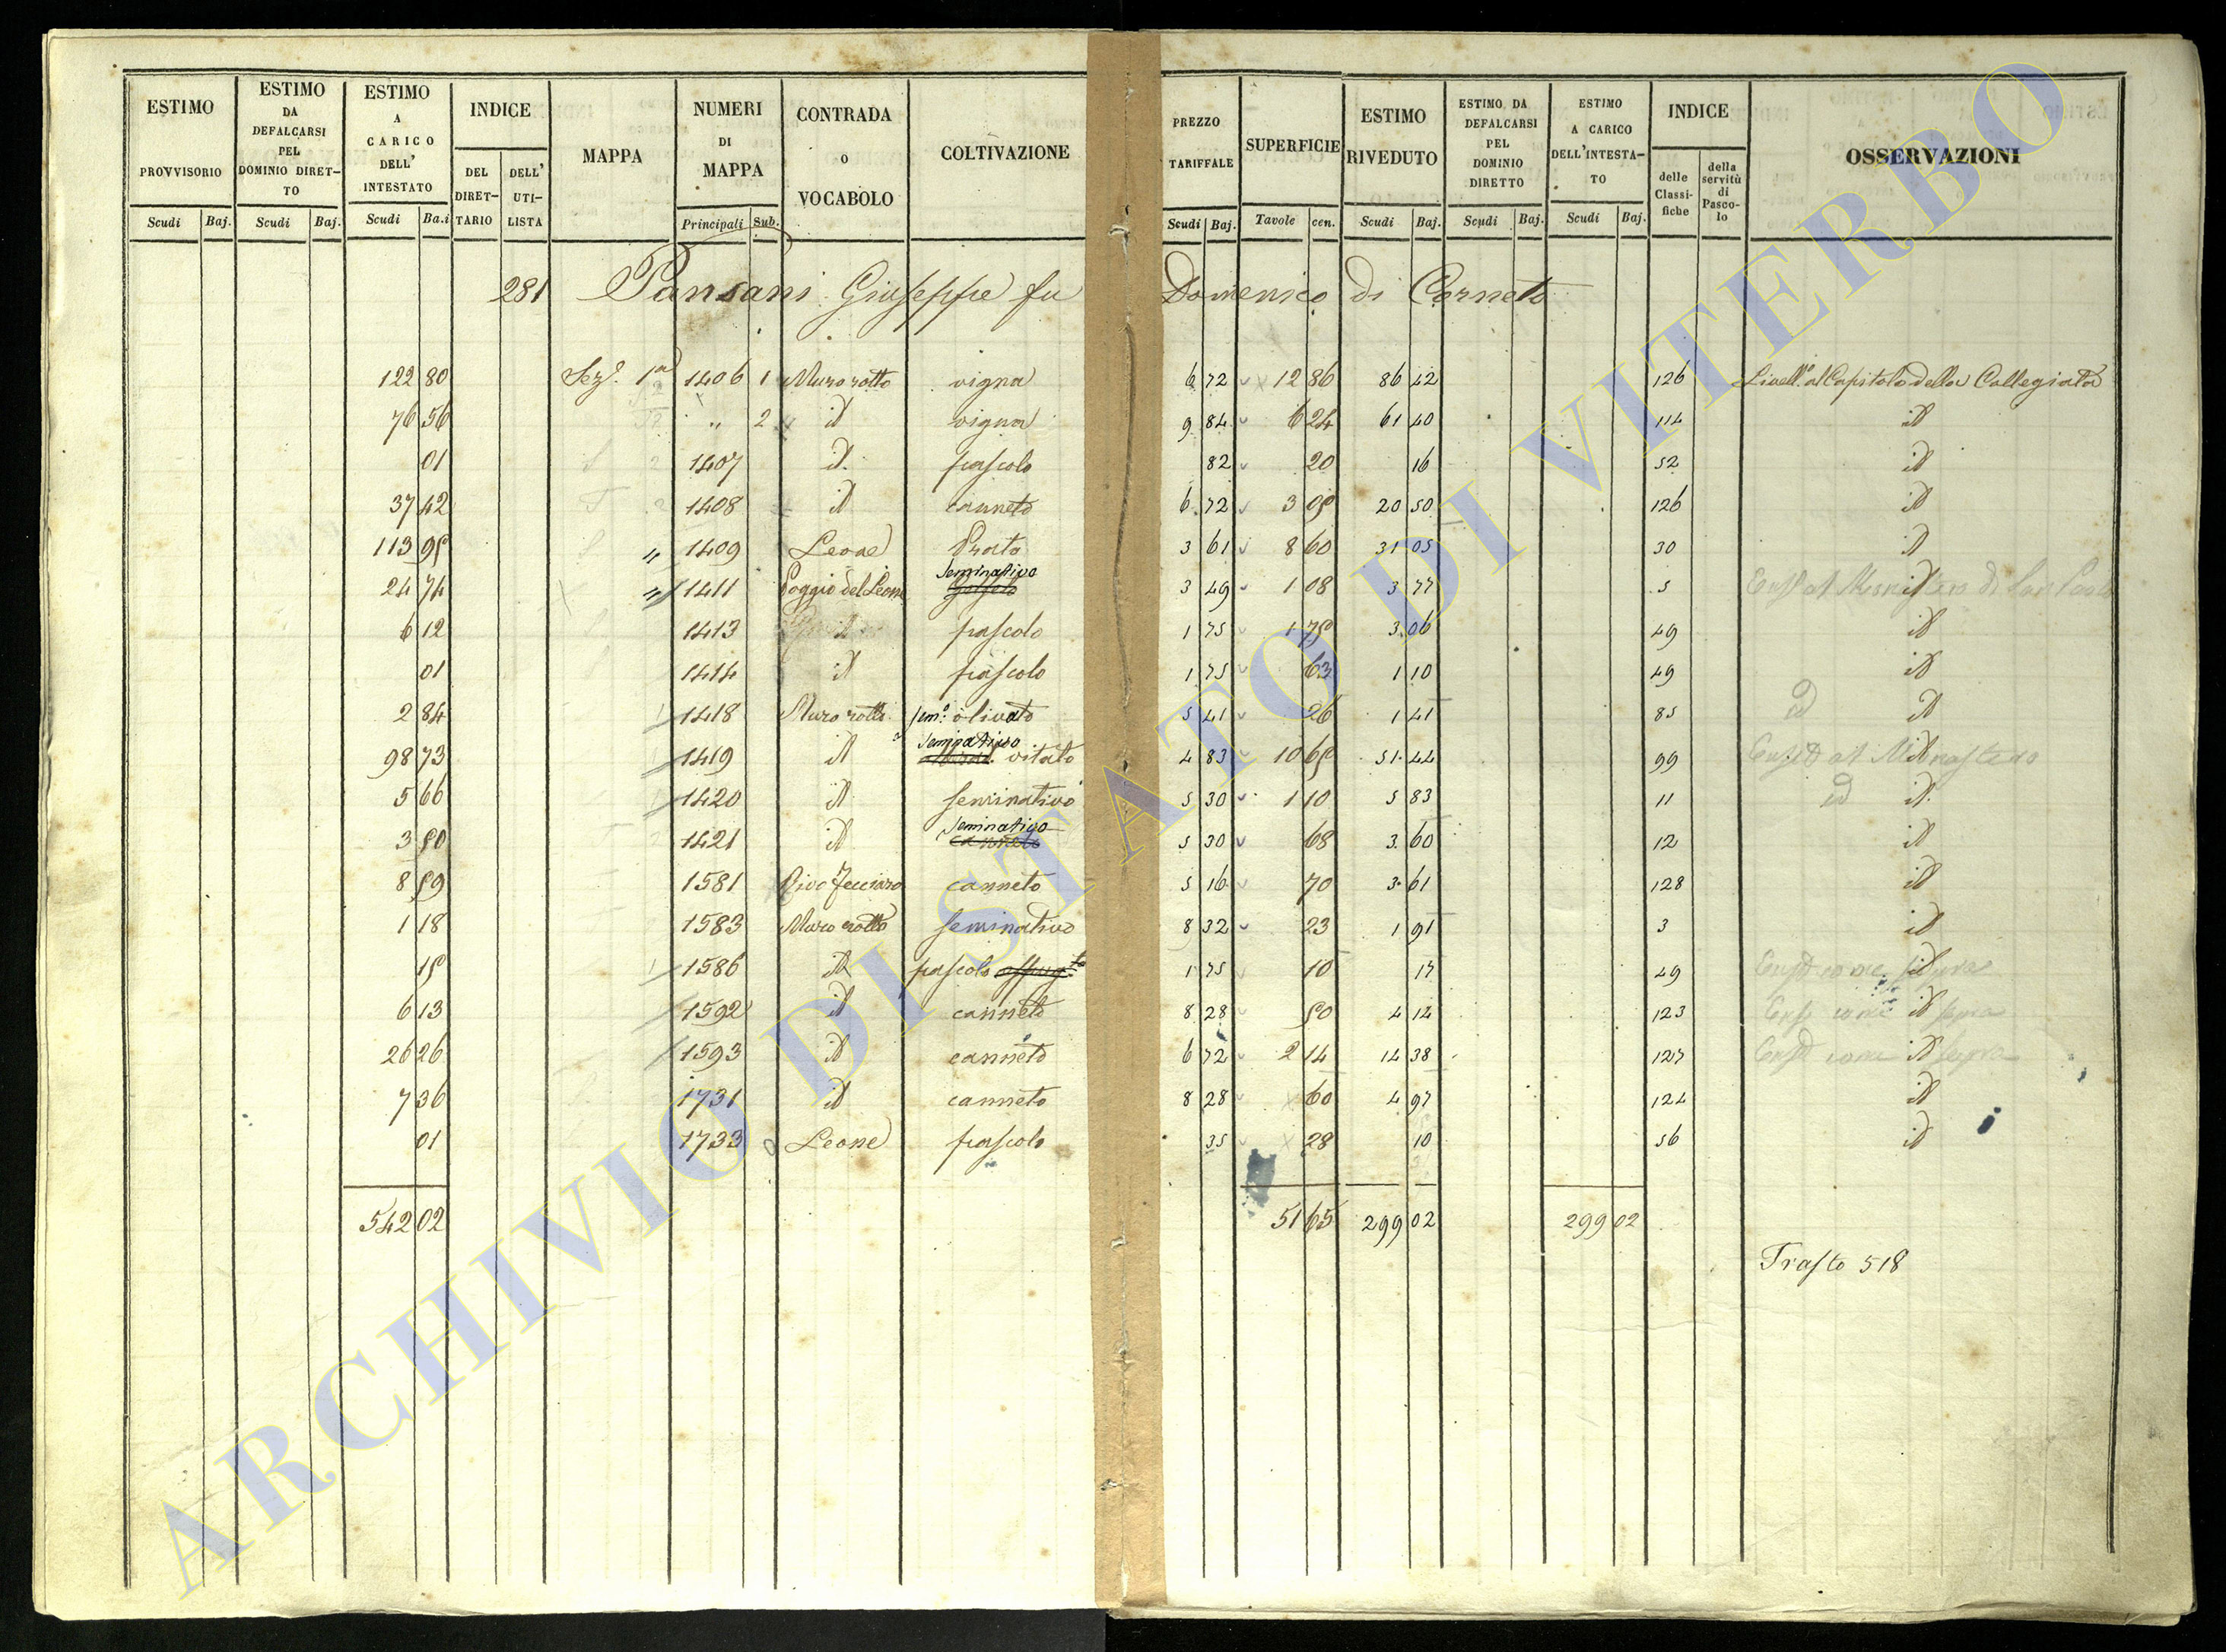 ESTIMO PROVVISORIO
Scudi Baj.
ESTIMO DA DEFALCARSI PEL DOMINIO DIRETTO
Scudi Baj.
ESTIMO A CARICO DELL' INTESTATO
Scudi Ba.i
INDICE
DEL DIRETTARIO
DELL' UTILISTA
MAPPA
NUMERI DI MAPPA
Principali Sub.
CONTRADA O VOCABOLO
COLTIVAZIONE
PREZZO TARIFFALE
Scudi Baj.
SUPERFICIE
Tavole cen.
ESTIMO RIVEDUTO
Scudi Baj.
ESTIMO DA DEFALCARSI PEL DOMINIO DIRETTO
Scudi Baj.
ESTIMO A CARICO DELL'INTESTATO
Scudi Baj.
INDICE
delle Classifiche
della servitù di Pascolo
OSSERVAZIONI
281 Pansani Giuseppe fu Domenico di Corneto
122 80 Sez.e 1a 1406 1 Muro rotto vigna 6 72 12 86 86 42 126 Livell.o al Capitolo della Collegiata
76 56 " 2 id vigna 9 84 6 24 61 40 114 id
01 1407 id. pascolo 82 20 16 52 id
37 42 1408 id canneto 6 72 3 05 20 50 126 id
113 95 " 1409 Leone Prato 3 61 8 60 31 05 30 id
24 74 " 1411 Poggio del Leone Seminativo 3 49 1 08 3 77 5 id
6 12 1413 id pascolo 1 75 1 75 3 06 49 id
01 1414 id pascolo 1 75 63 1 10 49 id
2 84 1418 Muro rotto sem.o olivato 5 41 26 1 41 85 id
98 73 1419 id seminativo vitato 4 83 10 65 51 44 99 id
5 66 1420 id seminativo 5 30 1 10 5 83 11 id
3 50 1421 id Seminativo canneto 5 30 68 3 60 12 id
8 59 1581 canneto 5 16 70 3 61 128 id
1 18 1583 Muro rotto seminativo 8 32 23 1 91 3 id
15 1586 id pascolo 1 75 10 17 49 id
6 13 1592 id canneto 8 28 50 4 14 123 id
26 26 1593 id canneto 6 72 2 14 14 38 127 id
7 36 1731 id canneto 8 28 60 4 97 124 id
01 1733 Leone pascolo 35 28 10 56 id
542 02 51 65 299 02 299 02
Trasto 518
ARCHIVIO DI STATO DI VITERBO